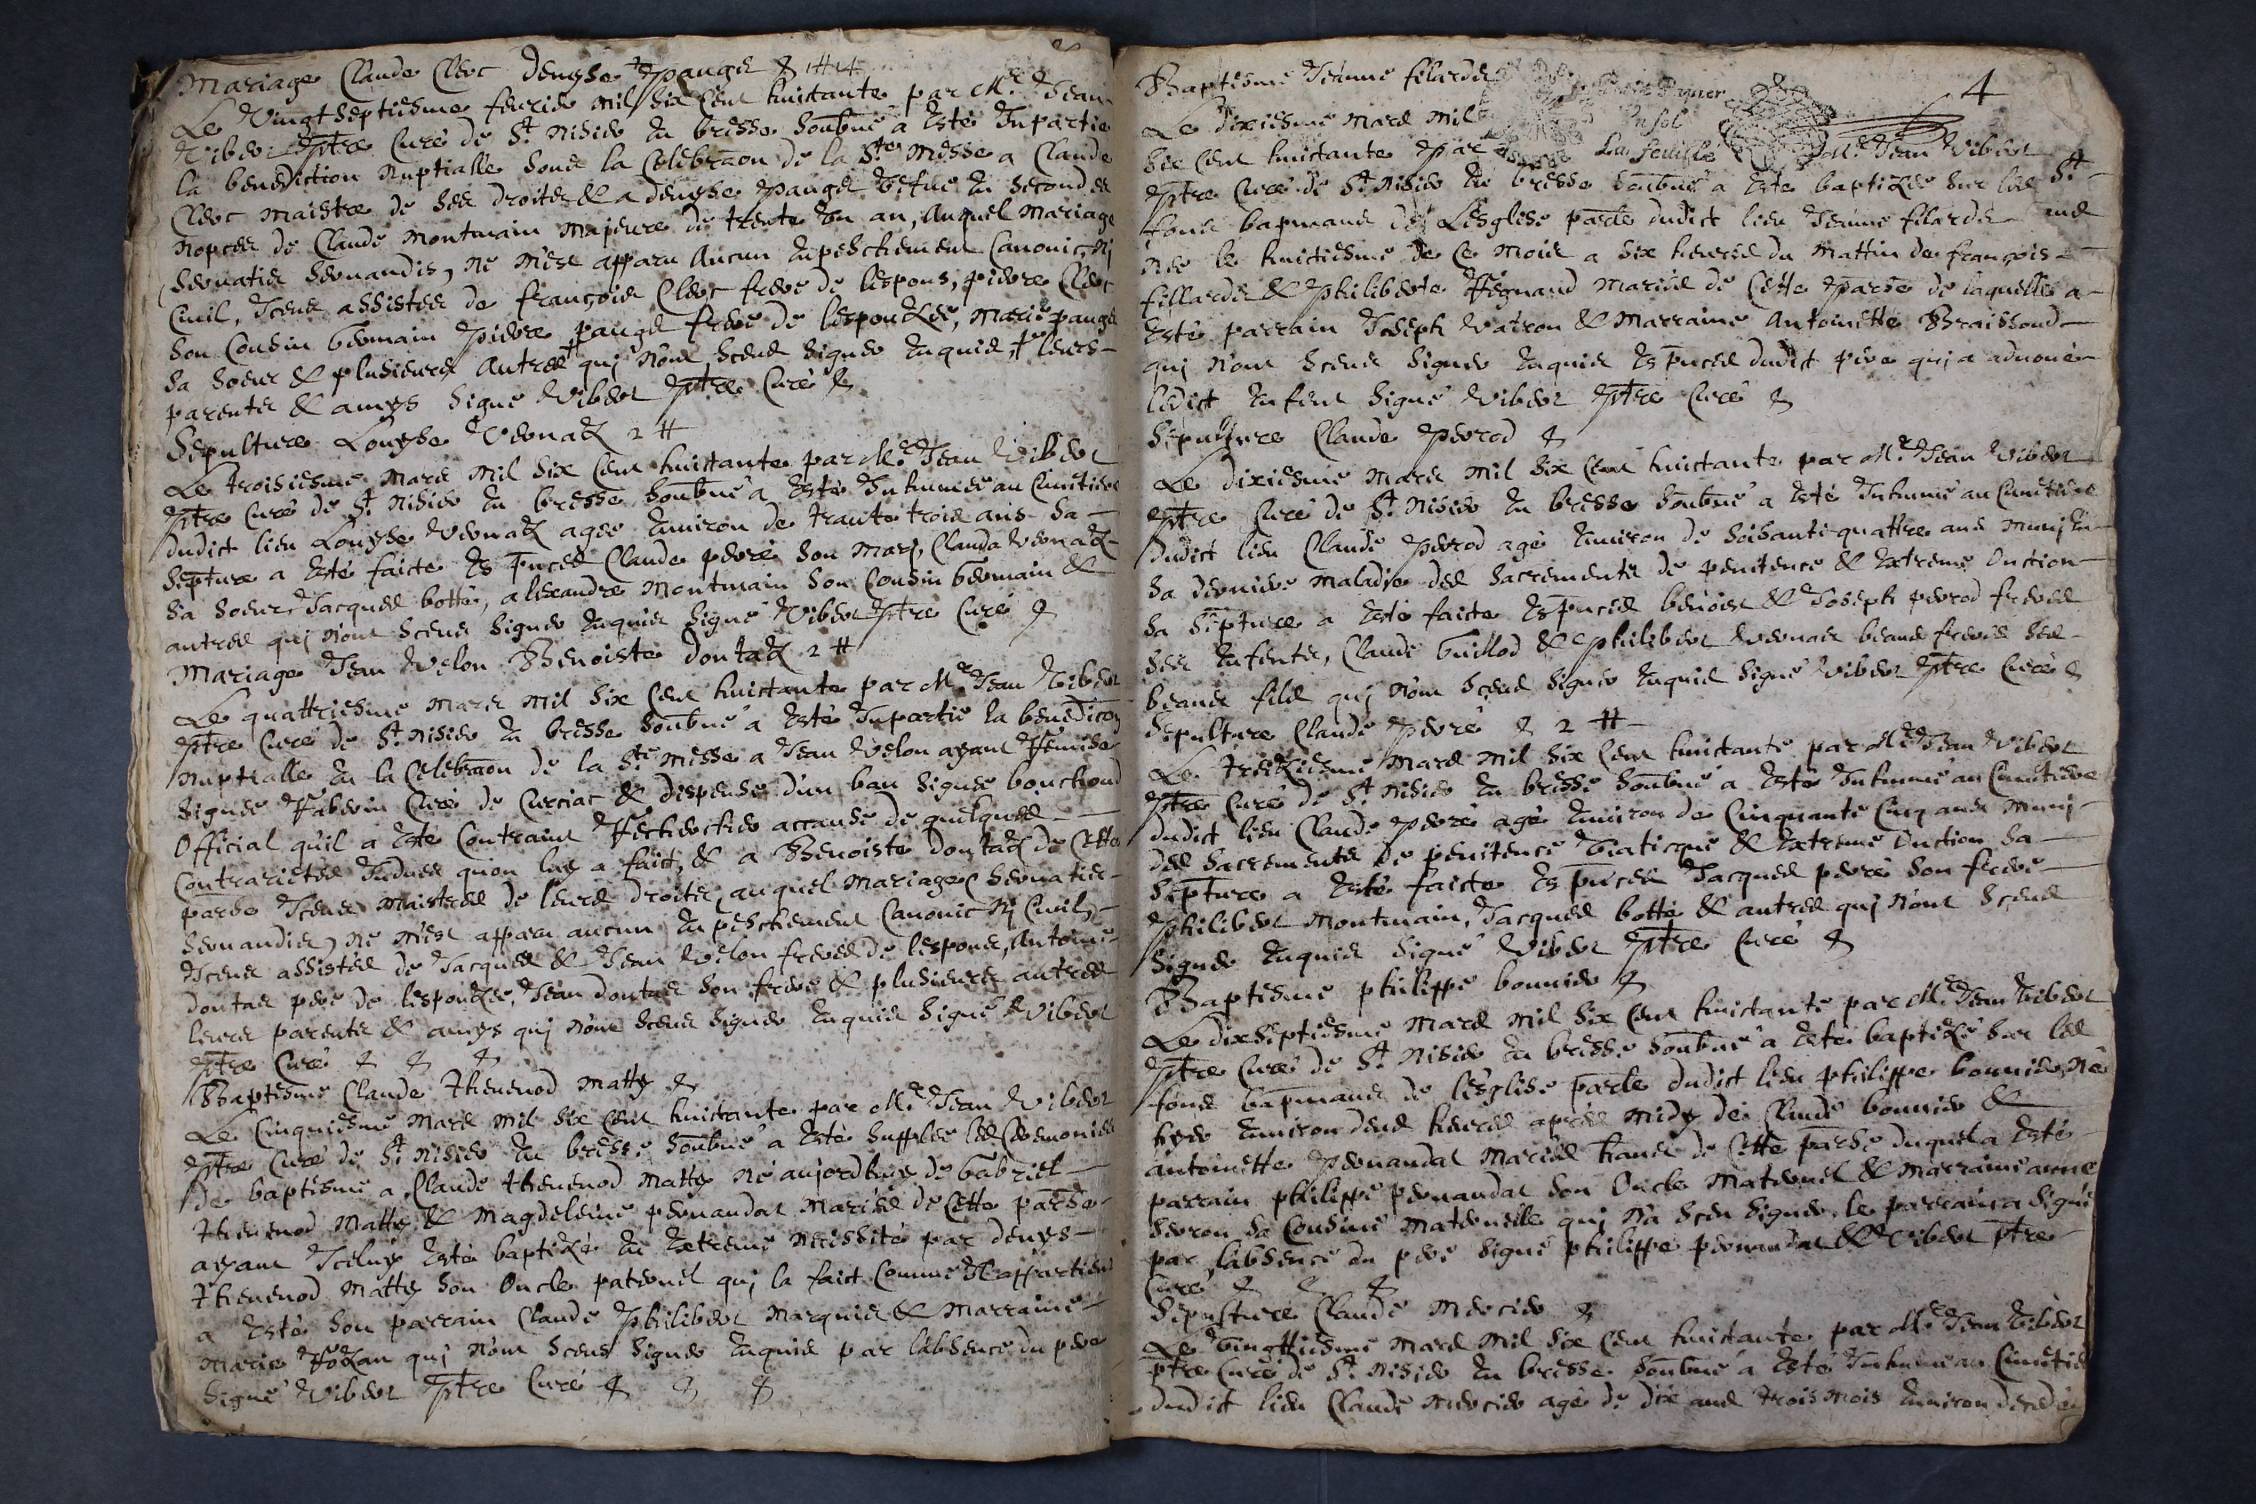 Mariage Claude Clerc Denyse Pauget
Le vingtseptiesme feurier mil six cent huictante par Mre Jean
Vibert ptre curé de St Nisier en bresse soubné a esté Inpartie
la benediction nuptialle soue la celebraon de la Ste Messe a Claude
Clerc maistre de ses droites & a denyse pauget vefue en secondes
nopces de Claude montmain majeure de trente un an, auquel mariage
seruatis seruandis, ne m'est apparu aucun enpeschement canonic ny
ciuil, Iceux assistes de françois Clerc frere de l'espous, pierre Clerc
son cousin germain pierre pauget frere de l'espouzée, marie pauget
sa soeur & plusieurs autres qui n'ont sceus signer enquis, leurs
parents & amys signé Vibert ptre curé
Sepulture Louyse Vernatz 2
Le troisiesme mars mil six cent huictante par Mre Jean Vibert
ptre curé de St Nisier en bresse soubné a esté Inhumée au cimetiere
dudict lieu Louyse Vernatz agée enuiron de trante trois ans sa
septure a esté faicte es pnces Claude peuré son mary, Clauda Vernatz
sa soeur Jacques botte, alexandre montmain son cousin germain &
autres qui n'ont sceus signer enquis signé Vibert ptre curé
Mariage Jean Velon Benoiste Dontaz 2
Le quattriesme mars mil six cent huictante par Mre Jean Vibert
ptre curé de St Nisier en bresse soubné a esté Inpartie la benedicon
nuptialle en la celebraon de la Ste Messe a Jean Velon ayant Remise
signée curé de Curciat & dispense d'un ban signée bouchond
Official qu'il a esté contraint Rechercher a cause de quelques
contrarietes Indues qu'on luy a faict, & a Benoiste dontaz de cette
parse Iceux maistres de leurs droites, auquel mariage seruatis
seruandis, ne m'est apparu aucun enpeschement canonic ny ciuil,
Iceux assistés de Jacques & Jean Velon freres de l'espous, Antoine
dontas pere de l'espouzée, Jean dontas son frere & plusieurs autres
leurs parents & amys qui n'ont sceus signer enquis signé Vibert
ptre curé
Baptesme Claude theuenod matty
Le cinquiesme mars mil six cent huictante par Mre Jean Vibert
ptre curé de St Nisier en bresse soubné a esté supplée les ceremonies
de baptesme a Claude theuenod matty né aujordhuy de Gabriel
theuenod matty & magdeleine peruandat mariés de cette parse
ayant Iceluy esté baptizé en extreme necissité par denys
theuenod matty son oncle paternel qui la faict comme il appartient
a esté son parrain Claude philibert marquis & marraine
marie qui n'ont sceus signer enquis par l'absence du pere
signé Vibert ptre curé
4
Baptesme Jeanne filarde
Papier
Un sol
La feuille
Le dixiesme mars mil
six cent huictante par Mre Jean Vibert
ptre curé de St Nisier en bresse soubné a esté baptizée sur les St
fons bapmaux de L'esglise parlle dudict lieu Jeanne filarde
née le huictiesme de ce mois a six heures du mattin de françois
fillarde & philiberte Regnaud mariés de cette parse de laquelle a
esté parrain Joseph Vatron & marraine Antoinette Braissoud
qui n'ont sceus signer enquis es pnces dudict pere qui a aduoué
ledict enfent signé Vibert ptre curé
Sepulture Claude perrod
Le dixiesme mars mil six cent huictante par Mre Jean Vibert
ptre curé de St Nisier en bresse soubné a esté Inhumé au cimetiere
dudict lieu Claude perrod agé enuiron de soisante-quattre ans muny en
sa derniere maladie des sacrements de penitence & extreme Onction
sa septure a esté faicte es pnces benoist & Joseph perrod freres
ses enfents, Claude Guillod & philibert Vernat beaux freres ses
beaux fils qui n'ont sceus signer enquis signé Vibert ptre curé
Sepulture Claude peuré 2
Le treiziesme mars mil six cent huictante par Mre Jean Vibert
ptre curé de St Nisier en bresse soubné a esté Inhumé au cimetiere
dudict lieu Claude peuré agé enuiron de cinquante cinq ans muny
des sacrements de penitence viaticque & extreme Onction sa
septure a esté faicte es pnces Jacques peuré son frere
philibert montmain, Jacques botte & autres qui n'ont sceus
signer enquis signé Vibert ptre curé
Baptesme philippe bonnier
Le dixseptiesme mars mil six cent huictante par Mre Jean Vibert
ptre curé de St Nisier en bresse soubné a esté baptizé sur les
fons bapmaux de l'esglise parlle dudict lieu philippe bonnier né
hyer enuiron deux heures apres midy de Claude bonnier &
antoinette peruandat mariés de cette parse duquel a esté
parrain philippe peruandat son oncle maternel & marraine anne
sa cousine maternelle qui n'a sceu signer, le parrain a signé
par l'absence du pere signé philippe peruandat & Vibert ptre
curé
Sepulture Claude mercier
Le vingttiesme mars mil six cent huictante par Mre Jean Vibert
ptre curé de St Nisier en bresse soubné a esté Inhumé au cimetiere
dudict lieu Claude mercier agé de dix ans trois mois enuiron decedé